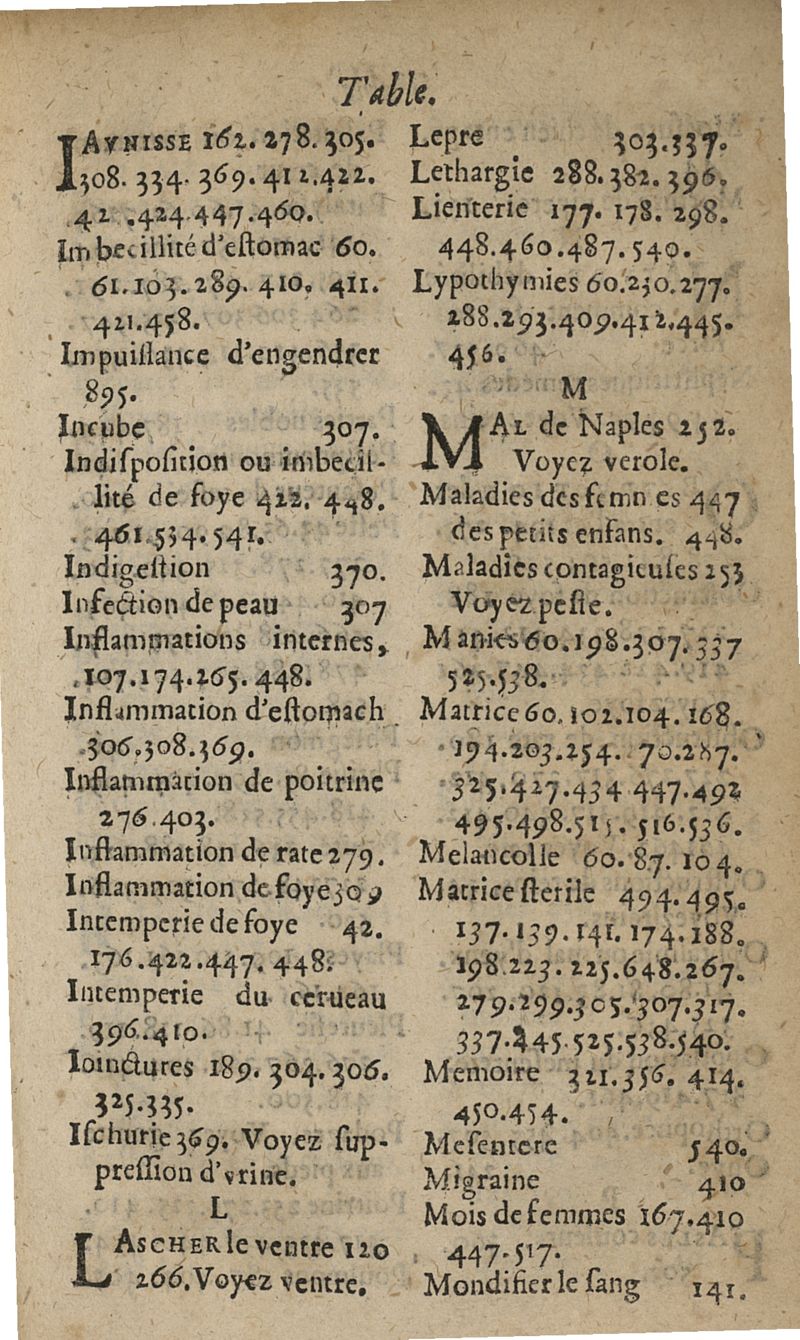 Table.
IAVNISSE 162. 278. 305.
308. 334. 369. 412.422.
.424.447.460.
Imbecillité d'estomac 60.
61.103.289. 410. 411.
421.458.
Impuissance d'engendrer
895.
Incube 307.
Indisposition ou imbecil-
lité de foye 422. 448.
461.534.541.
Indigestion 370.
Infection de peau 307
Inflammations internes,
107.174.265.448.
Inflammation d'estomach
306.308.369.
Inflammation de poitrine
276.403.
Inflammation de rate 279.
Inflammation de foye 309
Intemperie de foye 42.
176.422.447. 448.
Intemperie du cerueau
396.410.
Ioinctures 189. 304. 306.
325.335.
Ischurie 369. Voyez sup-
pression d'vrine.
L
LASCHER le ventre 120
266. Voyez ventre.
Lepre 303.337.
Lethargie 288.382.396.
Lienterie 177. 178. 298.
448.460.487.540.
Lypothymies 60.230.277.
288.293.409.412.445.
456.
M
MAL de Naples 252.
Voyez verole.
Maladies des femmes 447
des petits enfans. 448.
Maladies contagieuses 253
Voyez peste.
Manies 60.198.307.337
525.538.
Matrice 60.102.104.168.
194.203.254. 70.287.
325.427.434 447.492
495.498.515. 516.536.
Melancolie 60. 87. 104.
Matrice sterile 494.495.
137.139.141.174.188.
198.223.225.648.267.
279.299.305.307.317.
337.345.525.538.540.
Memoire 321.356. 414.
450.454.
Mesentere 540.
Migraine 410
Mois de femmes 167.410
447.517.
Mondifier le sang 141.